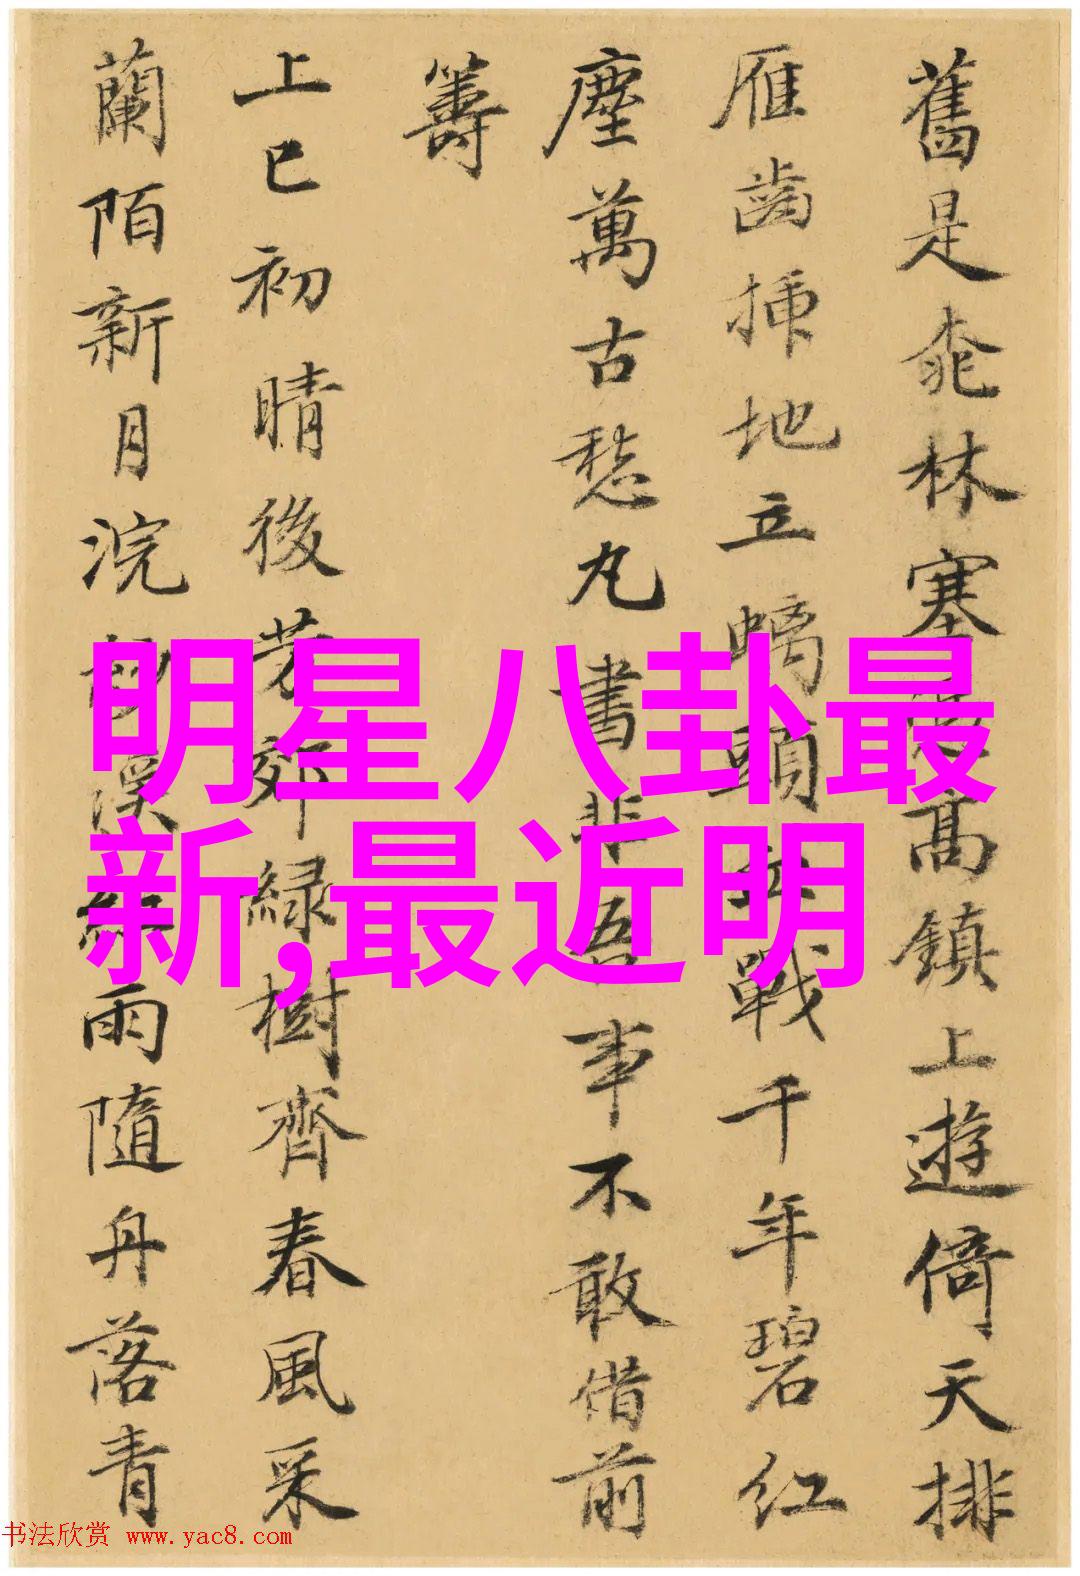 舊是桃林塞高鎮上遊倚天排
雁齒插地立螭頭戰千年碧紅
塵萬古愁丸書非吾事不敢借前
籌
上巳初晴後芳郊綠樹齊春風采
蘭陌新月浣紗溪紅雨隨舟落青
明星八卦最
新,最近明
书法欣赏 www.yac8.com